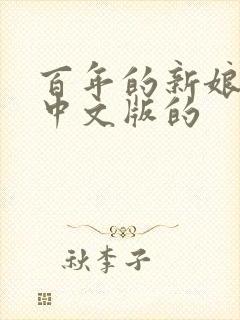 百年的新娘
中文版的
秋李子